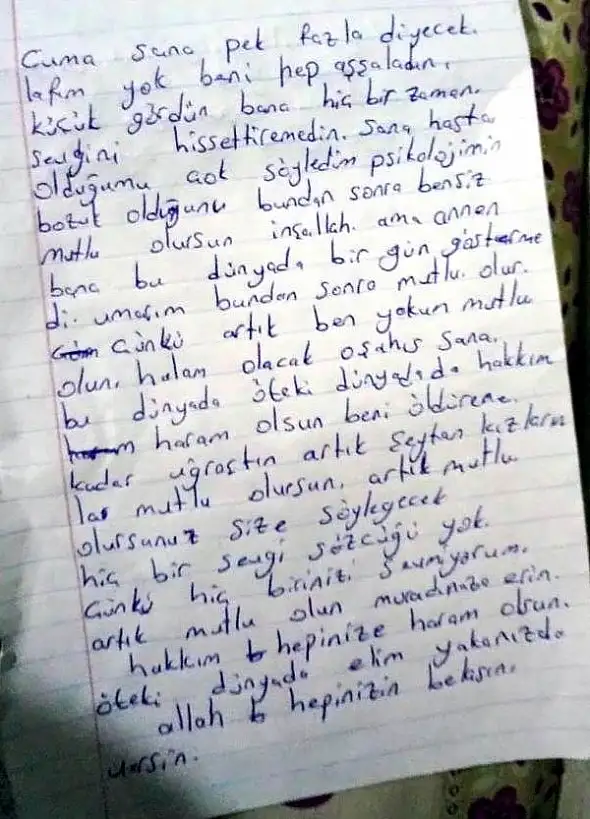 Cuma sana pek fazla diyecek.
lafım yok beni hep aşsaladın,
küçük gördün bana hiç bir zaman.
sevgini hissettiremedin. Sana hasta
olduğumu çok söyledim psikolojimin
bozuk olduğunu bundan sonra bensiz
mutlu olursun inşallah. ama annen
bana bu dünyada bir gün gösterme
di. umarım bundan sonra mutlu olur.
Çünkü artık ben yokum mutlu
olun, halam olacak o şahıs sana.
bu dünyada öteki dünyada da hakkım
haram olsun beni öldürene.
kadar uğraştın artık şeytan kızların
la mutlu olursun. artık mutlu
olursunuz size söyleyecek
hiç bir sevgi sözcüğü yok.
Çünkü hiç birinizi savmiyorum.
artık mutlu olun muradınıza erin.
hakkım hepinize haram olsun.
öteki dünyada elim yakanızda
allah hepinizin belasın.
versin.